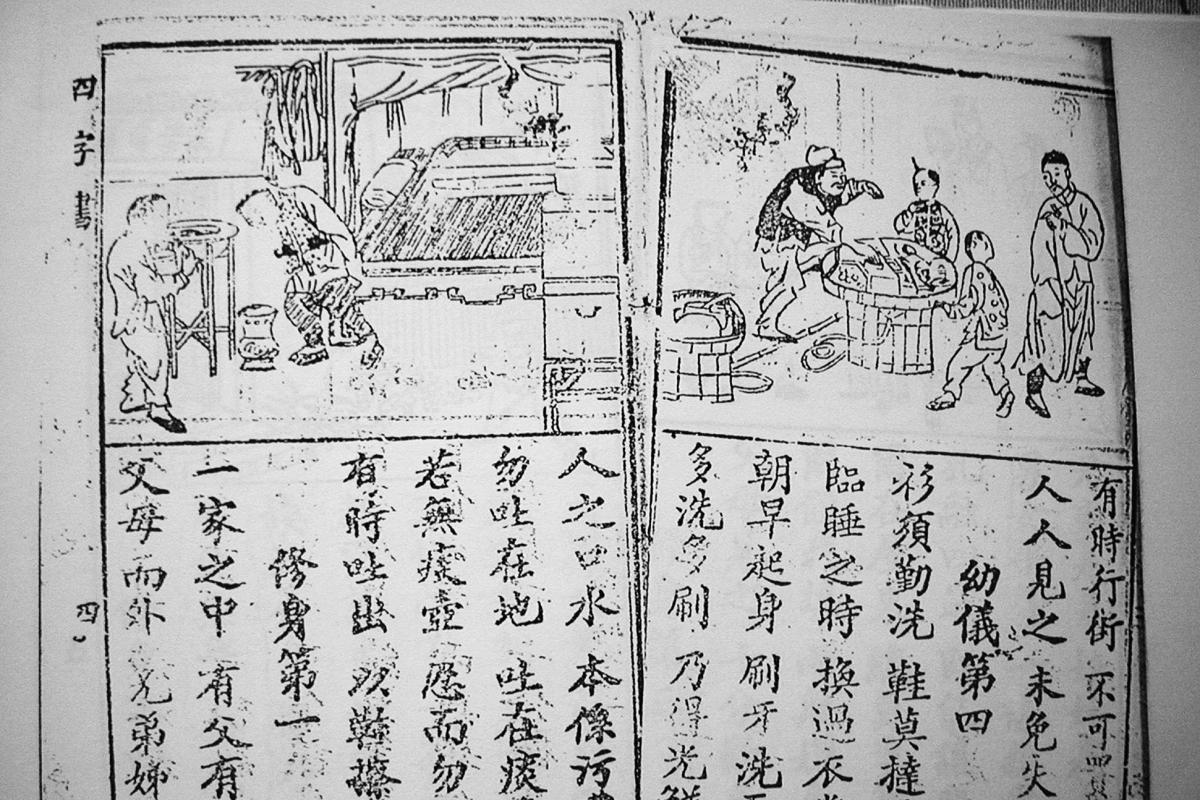 有時行街 不可
人人見之 未免失
幼儀第四
衫須勤洗 鞋莫撻
臨睡之時 換過衣
朝早起身 刷牙洗
多洗多刷 乃得光
人之口水 本係污
勿吐在地 吐在痰
若無痰壺 忍而勿
有時吐出 以鞋擦
修身第一
一家之中 有父有
父母而外 兄弟姊
四字書
四